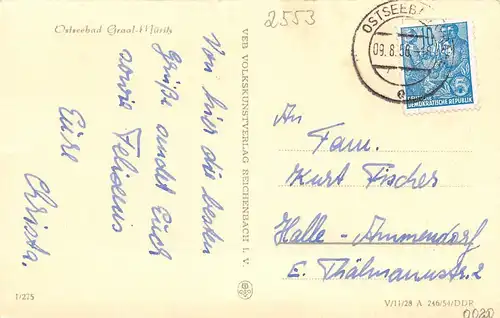 Ostseebad Graal-Müritz
2553
Von hier die besten
Grüße sendet Euch
sowie Felidens
Eure
Christa.
VEB VOLKSKUNSTVERLAG REICHENBACH I. V.
OSTSEEBA
09.8.56
10
5
DEMOKRATISCHE REPUBLIK
An
Fam.
Kurt Fischer
Halle - Ammendorf
E. Thälmannstr. 2
1/275
V/11/28 A 246/54/DDR
0080